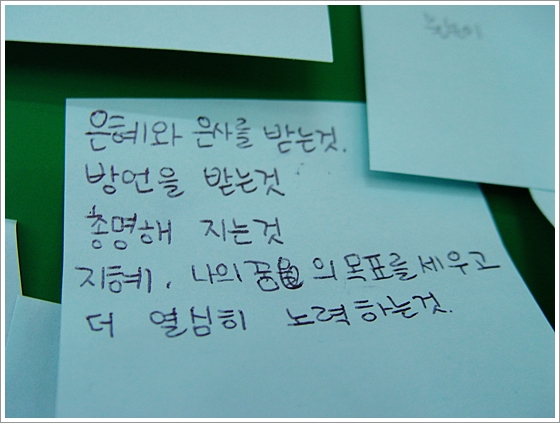 은혜와 은사를 받는것.
방언을 받는것
총명해 지는것
지혜, 나의 꿈의 목표를 세우고
더 열심히 노력하는것.